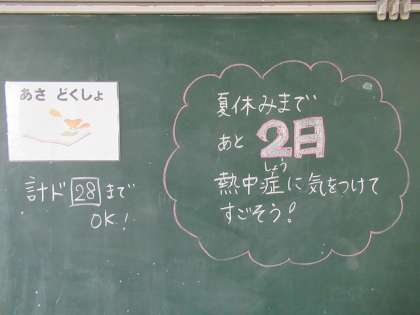 あさ どくしょ
計ド 28 まで
OK!
夏休みまで
あと 2日
しょう
熱中症に気をつけて
すごそう!